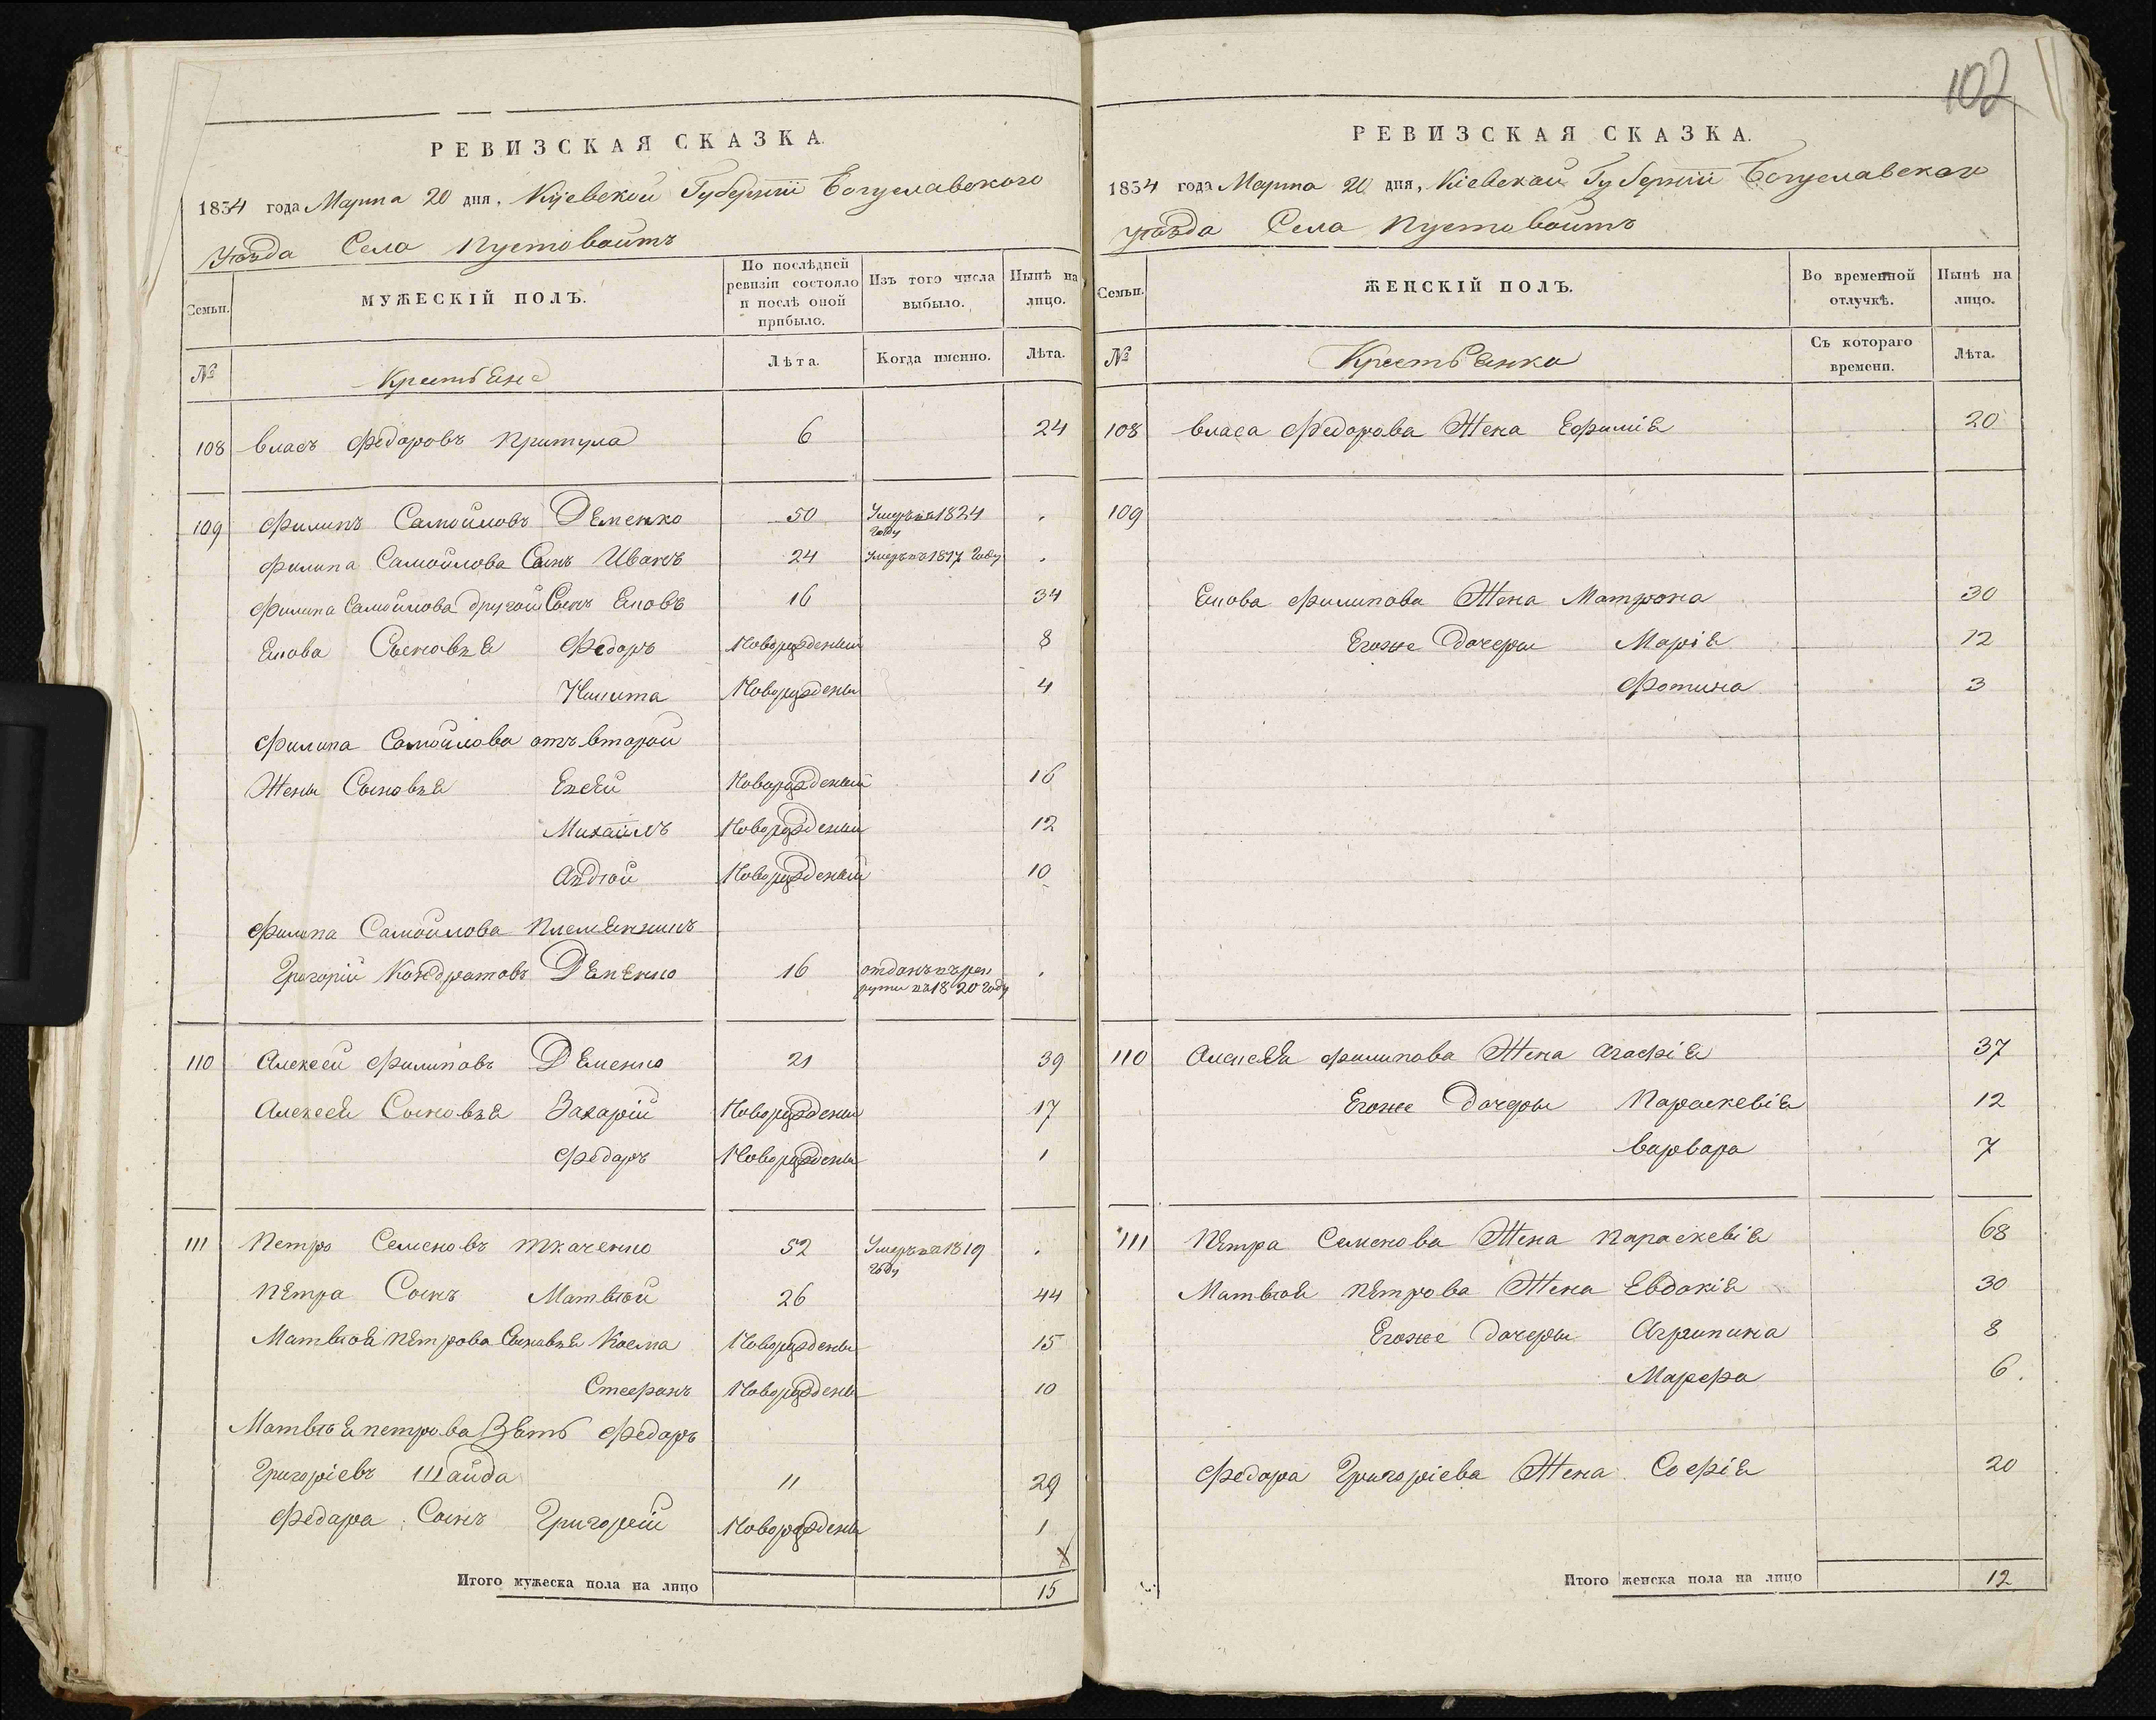 РЕВИЗСКАЯ СКАЗКА.
1834 года Марта 20 дня, Кіевской Губерніи Богуславского
уѣзда Села Пустовойтъ
Семьи.
МУЖЕСКІЙ ПОЛЪ.
По послѣдней ревизіи состояло и послѣ оной прибыло.
Изъ того числа выбыло.
Нынѣ на лицо.
№
Крестьяне
Лѣта.
Когда именно.
Лѣта.
108 Власъ Федоровъ Притула 6 24
109 Филипъ Самойловъ Деменко 50 Умеръ въ 1824 году .
Филипа Самойлова Сынъ Иванъ 24 Умеръ въ 1817 году .
Филипа Самойлова другой Сынъ 16 34
Сыновья Федоръ Новорожденый 8
Никита Новорождены 4
Филипа Самойлова отъ второй
Жены Сыновья Новорожденый 16
Михайлъ Новорожденый 12
Новорожденый 10
Филипа Самойлова Племянникъ
Григорій Кондратовъ Деменко 16 отданъ въ рекруты въ 1820 году .
110 Алексей Филиповъ Деменко 21 39
Алексея Сыновья Захарій Новорождены 17
Федоръ Новорождены 1
111 Петро Семеновъ Ткаченко 52 Умеръ въ 1819 году .
Петра Сынъ Матвѣй 26 44
Матвѣя Петрова Сыновья Косма Новорождены 15
Стефанъ Новорождены 10
Матвѣя Петрова Зять Федоръ
Григоріевъ Шайда 11 29
Федора Сынъ Григорій Новорождены 1
Итого мужеска пола на лицо 15
102
РЕВИЗСКАЯ СКАЗКА.
1834 года Марта 20 дня, Кіевской Губерніи Богуславского
уѣзда Села Пустовойтъ
Семьи.
ЖЕНСКІЙ ПОЛЪ.
Во временной отлучкѣ.
Нынѣ на лицо.
№
Крестьянки
Съ котораго времени.
Лѣта.
108 Власа Федорова Жена Ефимія 20
109
Филипова Жена Матрона 30
Егоже Дочеры Марія 12
Фотина 3
110 Алексея Филипова Жена Агафія 37
Егоже Дочеры Параскевія 12
Варвара 7
111 Петра Семенова Жена Параскевія 68
Матвѣя Петрова Жена Евдокія 30
Егоже Дочеры Агрипина 8
Марфа 6.
Федора Григоріева Жена Софія 20
Итого женска пола на лицо 12